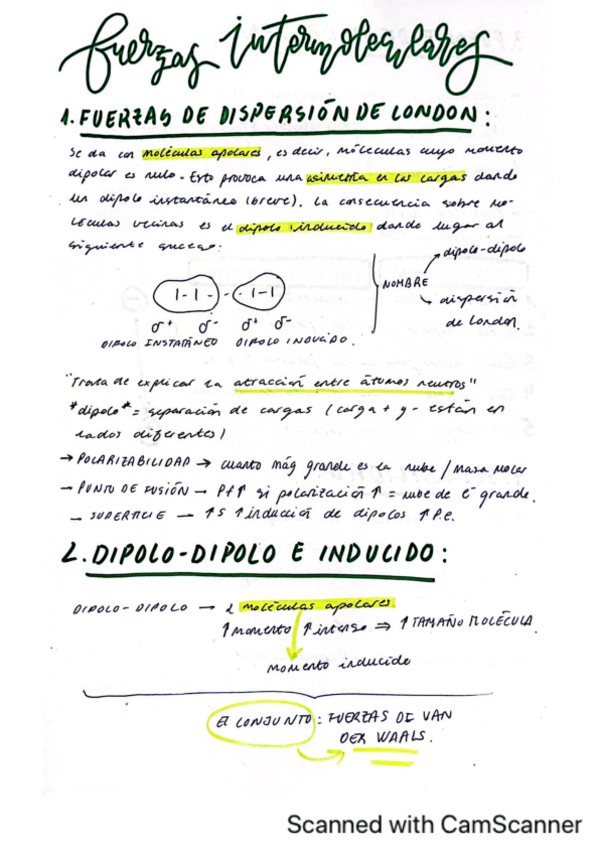 fuerzas intermoleculares
1. FUERZAS DE DISPERSIÓN DE LONDON:
Se da con moléculas apolares, es decir, moléculas cuyo momento
dipolar es nulo. Esto provoca una asimetría en las cargas dando
un dipolo instantáneo (breve). La consecuencia sobre mo-
léculas vecinas es el dipolo inducido dando lugar al
siguiente suceso:
dipolo-dipolo
NOMBRE
dispersión
de London.
δ+ δ- δ+ δ-
DIPOLO INSTATÁNEO DIPOLO INDUCIDO.
"Trata de explicar la atracción entre átomos neutros"
*dipolo* = separación de cargas (carga + y - están en
lados diferentes)
→ POLARIZABILIDAD → cuanto más grande es la nube / Masa Molar
→ PUNTO DE FUSIÓN → Pf↑ si polarización ↑ = nube de e⁻ grande.
→ SUPERFICIE → ↑S ↑inducción de dipolos ↑P.e.
2. DIPOLO-DIPOLO E INDUCIDO:
DIPOLO-DIPOLO → 2 moléculas apolares
↑Momento ↑intenso ⇒ ↑TAMAÑO MOLÉCULA
momento inducido
El CONJUNTO: FUERZAS DE VAN
DER WAALS.
Scanned with CamScanner